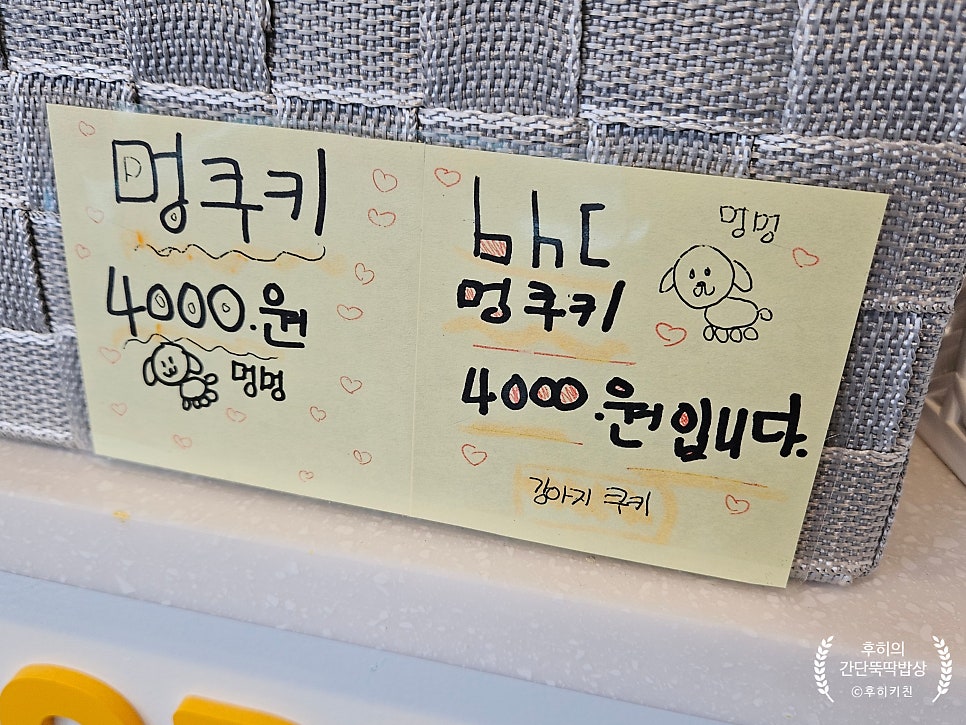 멍쿠키
4000.원
멍멍
bhc
멍멍
멍쿠키
4000.원입니다.
강아지 쿠키
후히의
간단뚝딱밥상
©후히키친